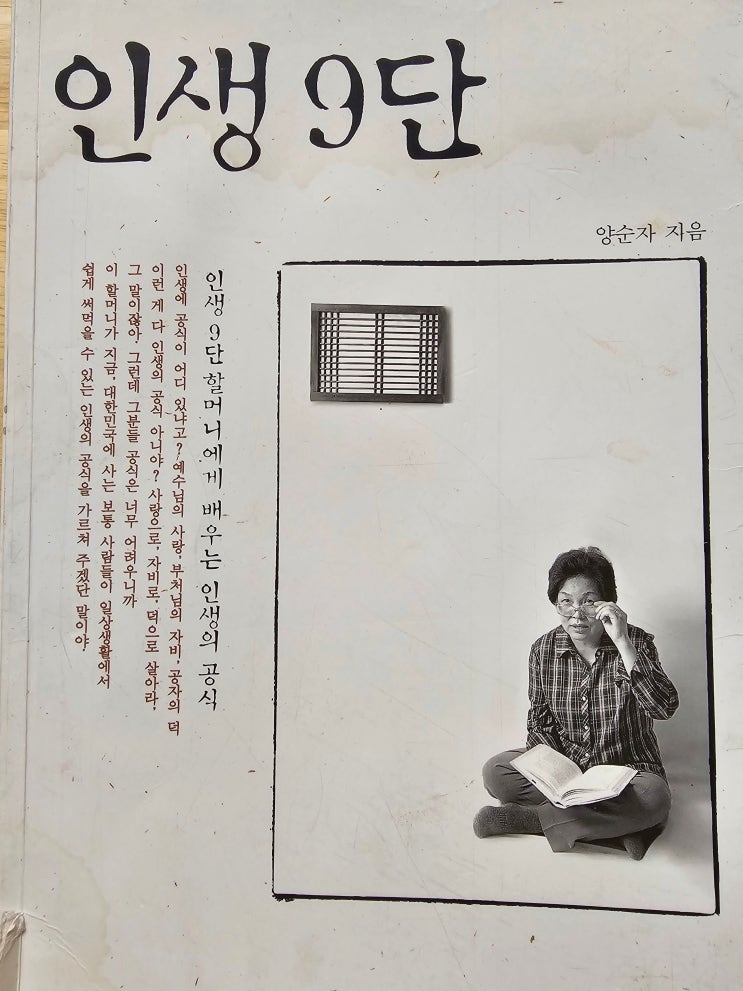 인생 9단
양순자 지음
인생 9단 할머니에게 배우는 인생의 공식
인생에 공식이 어디 있냐고? 예수님의 사랑, 부처님의 자비, 공자의 덕
이런 게 다 인생의 공식 아니야? 사랑으로, 자비로, 덕으로 살아라,
그 말이잖아. 그런데 그분들 공식은 너무 어려우니까
이 할머니가 지금, 대한민국에 사는 보통 사람들이 일상생활에서
쉽게 써먹을 수 있는 인생의 공식을 가르쳐 주겠단 말이야